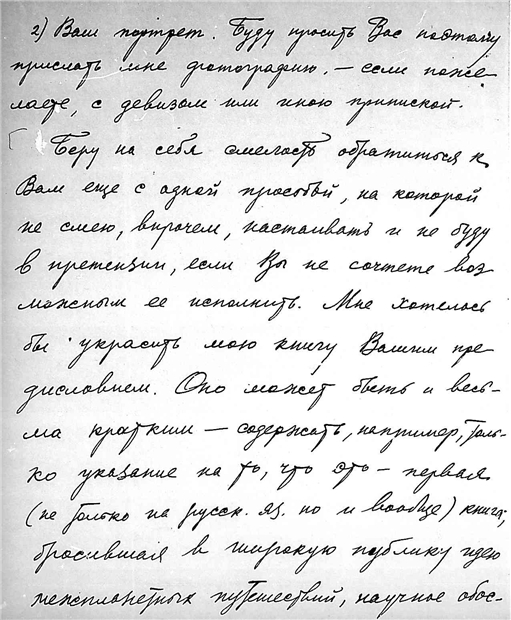 2) Ваш портрет. Буду просить Вас поэтому
прислать мне фотографию, — если поже
лаете, с девизом или иною припиской.
Беру на себя смелость обратиться к
Вам еще с одной просьбой, на которой
не смею, впрочем, настаивать и не буду
в претензии, если Вы не сочтете воз
можным ее исполнить. Мне хотелось
бы украсить мою книгу Вашим пре
дисловием. Оно может быть и весь-
ма кратким — содержать, например, толь-
ко указание на то, что это – первая
(не только на русск. яз. но и вообще) книга,
бросившая в широкую публику идею
межпланетных путешествий, научное обос-